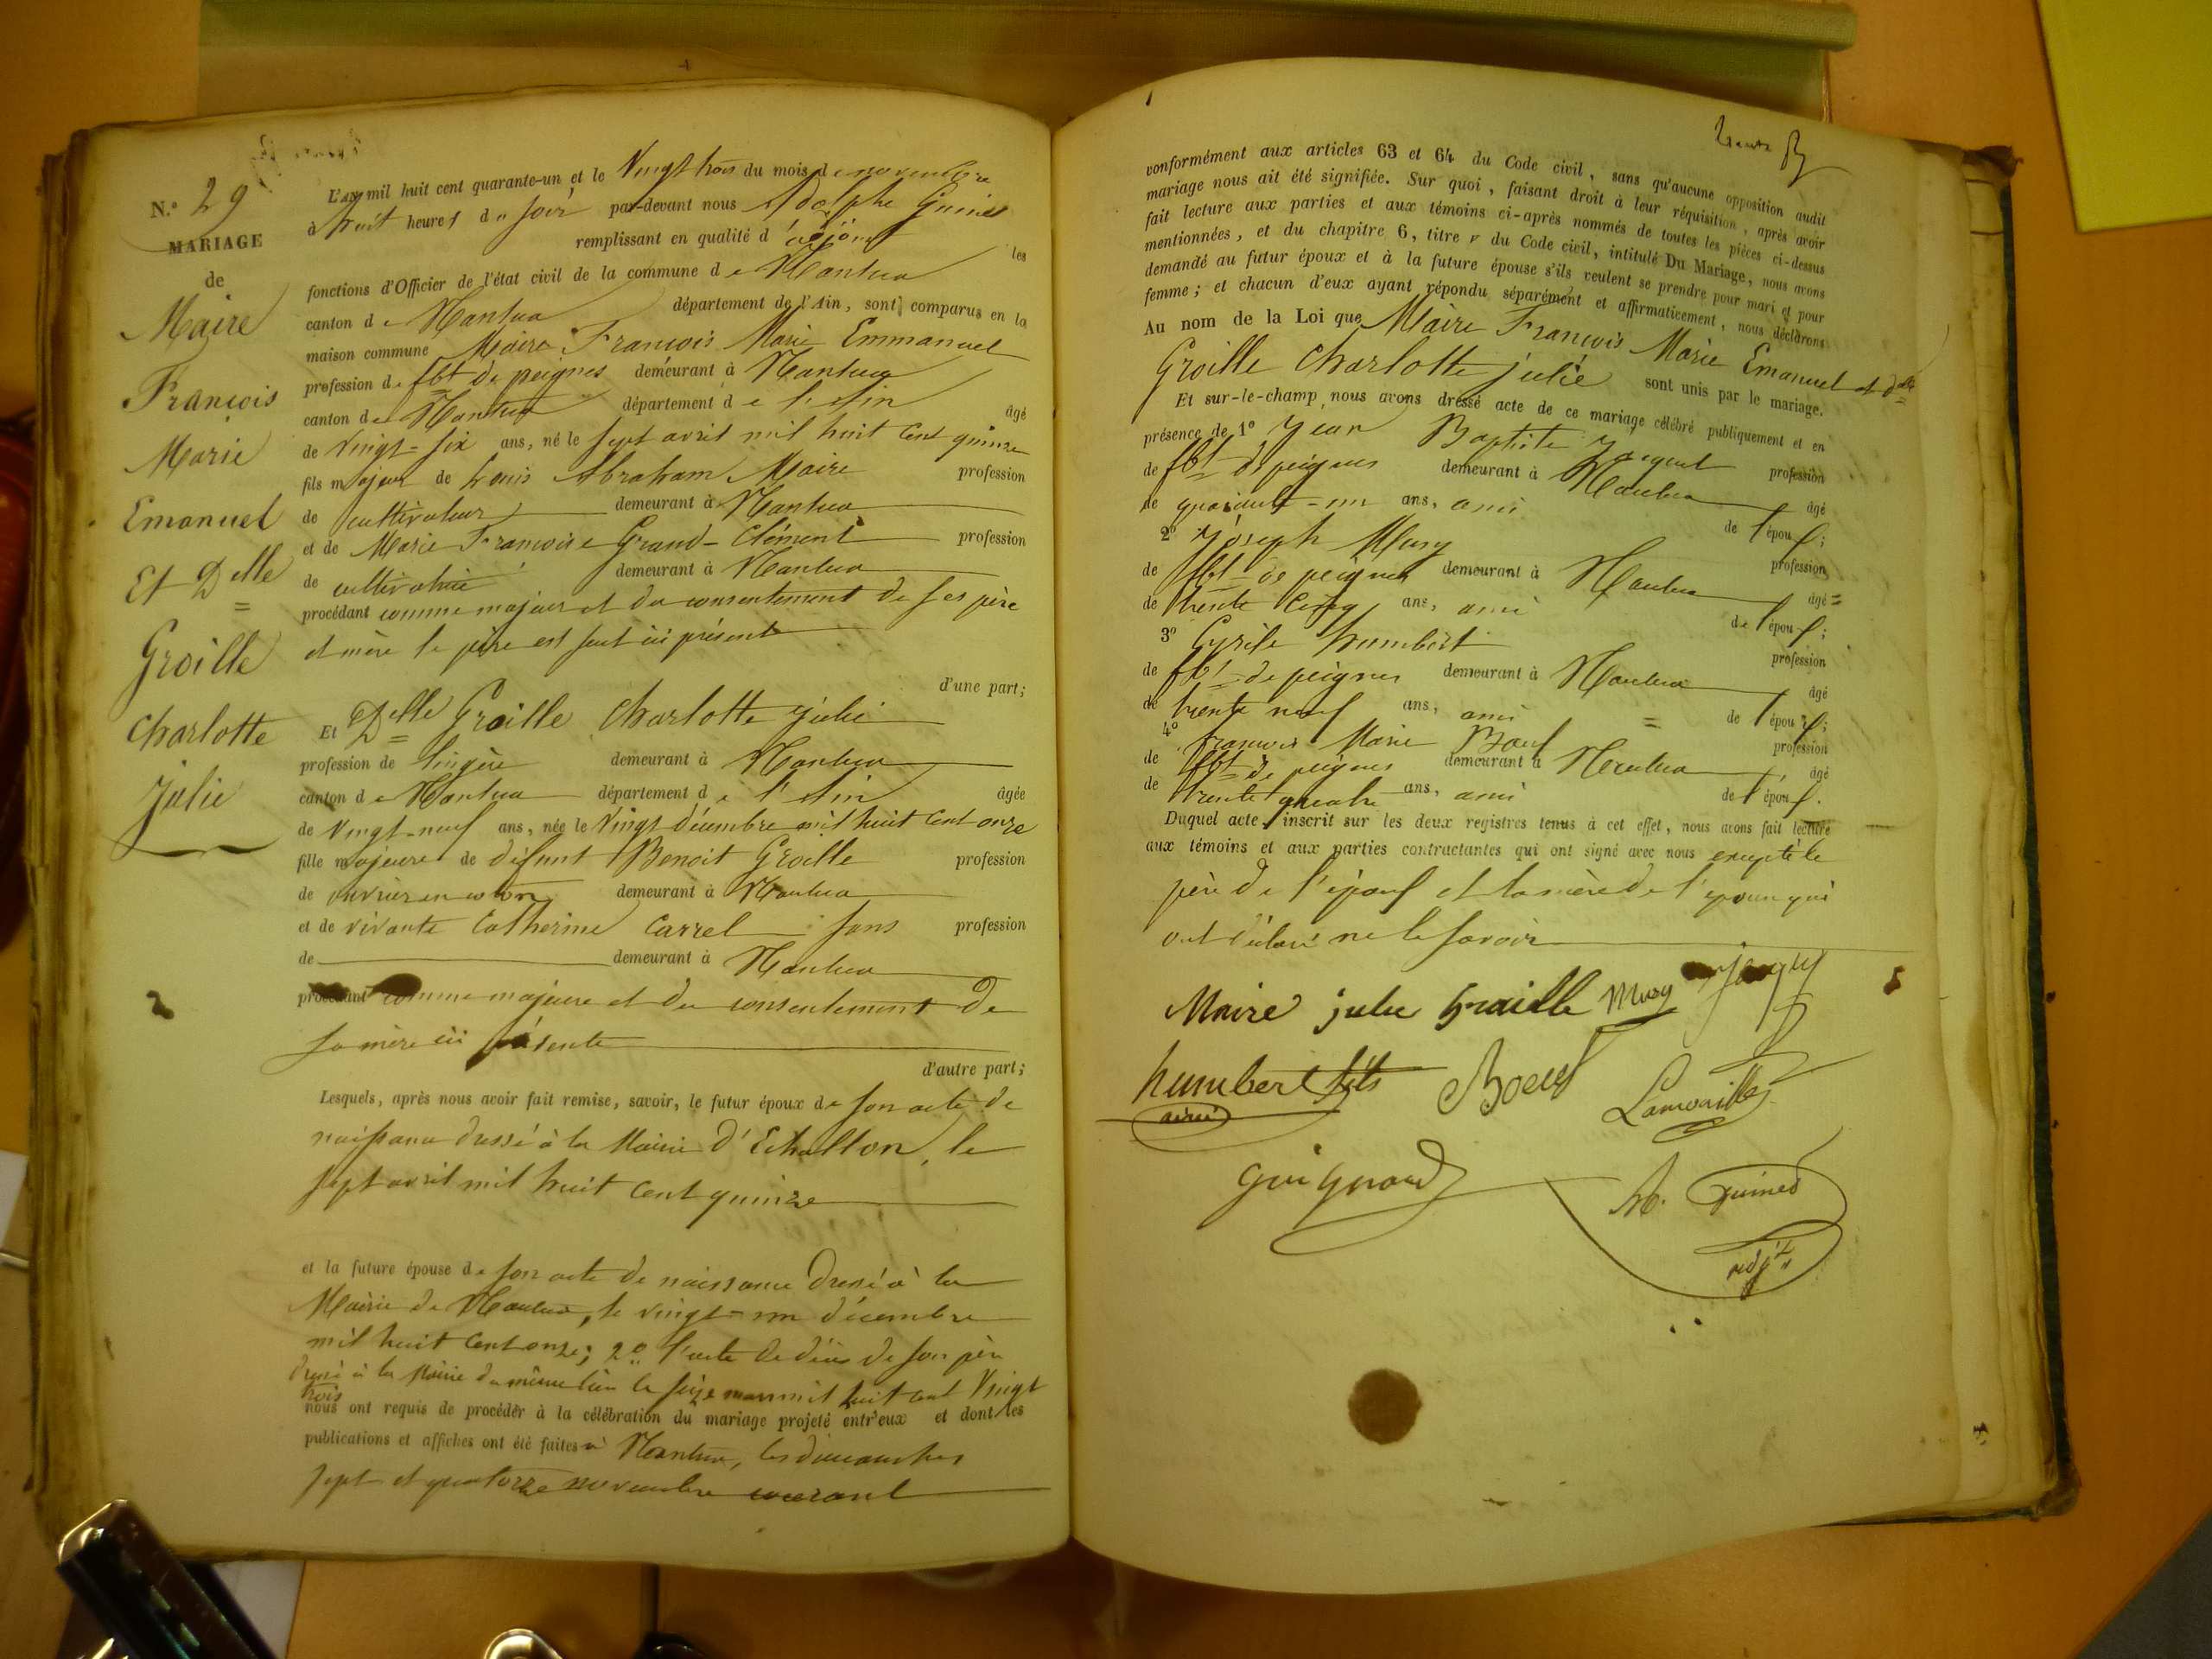 N.° 29
MARIAGE
de
Maire
François
Marie
Emanuel
Et Delle
Groille
Charlotte
Julie
L'an mil huit cent quarante-un et le Vingt trois du mois de novembre
à huit heures du soir par-devant nous Adolphe Guinet
remplissant en qualité d'adjoint les
fonctions d'Officier de l'état civil de la commune de Nantua
canton de Nantua département de l'Ain, sont comparus en la
maison commune Maire François Marie Emmanuel
profession de fbt de peignes demeurant à Nantua
canton de Nantua département de l'Ain âgé
de vingt-six ans, né le sept avril mil huit cent quinze
fils majeur de Louis Abraham Maire profession
de cultivateur demeurant à Nantua
et de Marie Françoise Grand-Clément profession
de cultivatrice demeurant à Nantua
procédant comme majeur et du consentement de ses père
et mère le père est seul ici présent
d'une part;
Et Delle Groille Charlotte julie
profession de lingère demeurant à Nantua
canton de Nantua département de l'Ain âgée
de vingt-neuf ans, née le vingt décembre mil huit cent onze
fille majeure de défunt Benoit Groille profession
de ouvrier en coton demeurant à Nantua
et de vivante Catherine Carrel sans profession
de demeurant à Nantua
procédant comme majeure et du consentement de
sa mère ici présente
d'autre part;
Lesquels, après nous avoir fait remise, savoir, le futur époux de son acte de
naissance dressé à la Mairie d'Echallon, le
sept avril mil huit cent quinze
et la future épouse de son acte de naissance dressé à la
Mairie de Nantua, le vingt-un décembre
mil huit cent onze; 2° l'acte de décès de son père
dressé à la Mairie du même lieu le seize mars mil huit cent vingt
trois
nous ont requis de procéder à la célébration du mariage projeté entr'eux et dont les
publications et affiches ont été faites à Nantua, les dimanches
sept et quatorze novembre courant
trente
conformément aux articles 63 et 64 du Code civil, sans qu'aucune opposition audit
mariage nous ait été signifiée. Sur quoi, faisant droit à leur réquisition, après avoir
fait lecture aux parties et aux témoins ci-après nommés de toutes les pièces ci-dessus
mentionnées, et du chapitre 6, titre v du Code civil, intitulé Du Mariage, nous avons
demandé au futur époux et à la future épouse s'ils veulent se prendre pour mari et pour
femme; et chacun d'eux ayant répondu séparément et affirmativement, nous déclarons
Au nom de la Loi que Maire François Marie Emanuel et Delle
Groille Charlotte julie sont unis par le mariage.
Et sur-le-champ nous avons dressé acte de ce mariage célébré publiquement et en
présence de 1° Jean Baptiste profession
de fbt de peignes demeurant à Nantua âgé
de quarante-un ans, ami de l'époux;
2° Joseph Musy profession
de fbt de peignes demeurant à Nantua âgé
de trente cinq ans, ami de l'époux;
3° Cyrile humbert profession
de fbt de peignes demeurant à Nantua âgé
de trente neuf ans, ami de l'époux;
4° François Marie Boeuf profession
de fbt de peignes demeurant à Nantua âgé
de trente quatre ans, ami de l'époux.
Duquel acte, inscrit sur les deux registres tenus à cet effet, nous avons fait lecture
aux témoins et aux parties contractantes qui ont signé avec nous excepté le
père de l'époux et la mère de l'épouse qui
ont déclaré ne le savoir
Maire julie Graille Musy
humbert fils Boeuf
ainé
Guignard A. Guinet
adjt